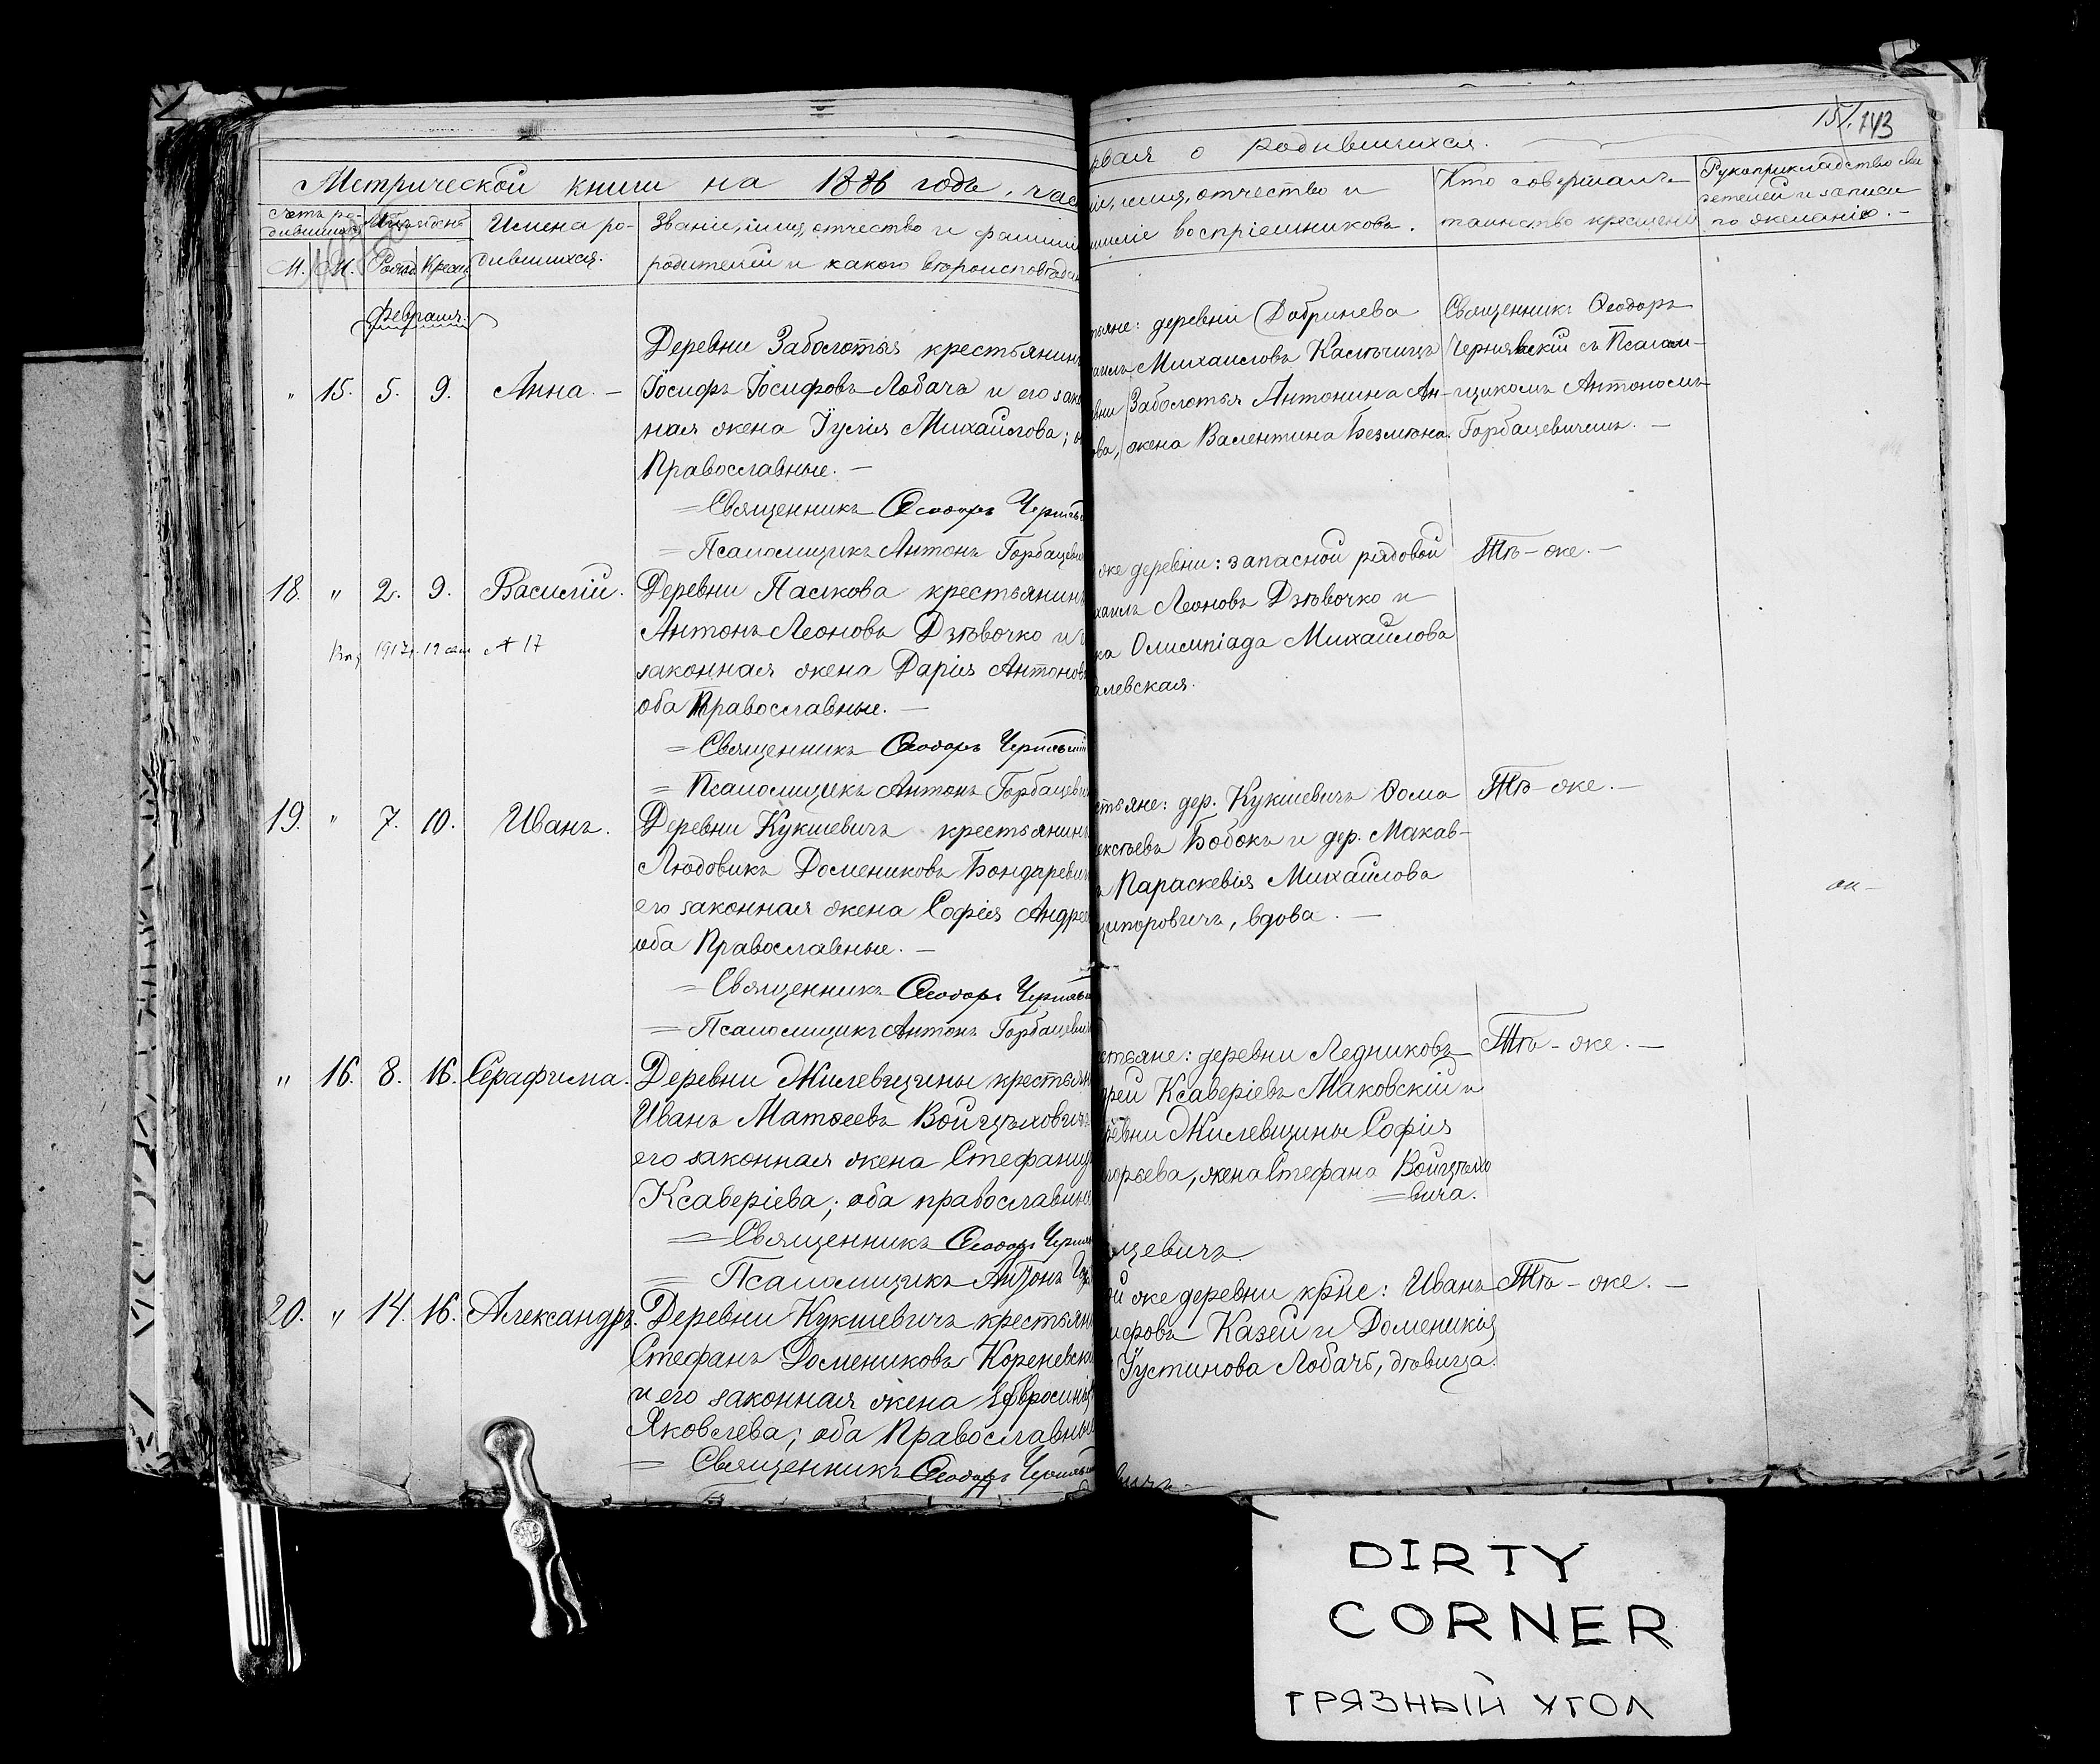 151. 143
Метрической книги на 1886 годъ, час
рвая о родившихся.
Счетъ ро-
дившихся
М. Ж.
Мѣсяцъ и день
Рожд Крещ
Имена ро-
дившихся.
Званіе, имя, отчество и фамилі
родителей и какого вѣроисповѣдан
іе, имя, отчество и
милія воспріемниковъ.
Кто совершалъ
таинство крещенія
Рукоприкладство сви
детелей и записи
по желанію. —
Февраля.
" 15. 5. 9. Анна. —
Деревни Заболотья крестьянинъ
Іосифъ Іосифовъ Лобачъ и его зако
ная жена Іулія Михайлова; о
Православные. —
= Священникъ Ѳеодоръ Черняв
= Псаломщикъ Антонъ Горбацеви
тьяне: деревни Добринева
аилъ Михаиловъ Каспѣчицъ
вни Заболотья Антонина Ан-
ова, жена Валентина Безмена.
Священникъ Ѳеодоръ
Чернявскій съ Псалом-
щикомъ Антономъ
Горбацевичемъ. —
18. " 2. 9. Василій.
1917 г. 19 № 17
Деревни Паськова крестьянинъ
Антонъ Леоновъ Дзѣвочко и
законная жена Дарія Антонов
оба Православные. —
= Священникъ Ѳеодоръ Чернявскій
= Псаломщикъ Антонъ Горбацеви
же деревни: запасной рядовой
хаилъ Леоновъ Дзѣвочко и
ка Олимпіада Михайлова
алевская.
Тѣ-же. —
19. " 7. 10. Иванъ.
Деревни Кукшевичъ крестьянинъ
Людовикъ Домениковъ Бондаревич
его законная жена Софія Андрее
оба Православные. —
= Священникъ Ѳеодоръ Чернявс
= Псаломщикъ Антонъ Горбацевич
стьяне: дер. Кукшевичъ Ѳома
ексѣевъ Бобокъ и дер. Макав-
ъ Параскевія Михайлова
ципоровичъ, вдова. —
Тѣ-же. —
" 16. 8. 16. Серафима.
Деревни Жилевщины крестьян
Иванъ Матѳеевъ Войцѣховичъ
его законная жена Стефанид
Ксаверіева; оба православные
= Священникъ Ѳеодоръ Черняв
= Псаломщикъ Антонъ Гор
стьяне: деревни Ледниковъ
дрей Ксаверіевъ Маковскій и
ревни Жилевщины Софія
горьева, жена Стефана Войцѣхо
= вича.
цевичъ
Тѣ-же. —
20. " 14. 16. Александръ.
Деревни Кукшевичъ крестьян
Стефанъ Домениковъ Кореневск
и его законная жена Евфросинія
Яковлева; оба Православные
= Священникъ Ѳеодоръ Чернявс
ой же деревни крне: Иванъ
ифовъ Казей и Доменикія
Іустинова Лобачъ, дѣвица.
Тѣ-же. —
вичъ
DIRTY
CORNER
ГРЯЗНЫЙ УГОЛ